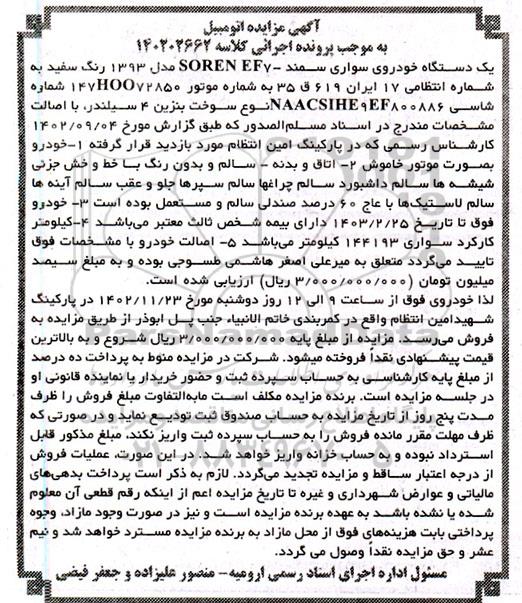 آگهی مزایده اتومبیل
به موجب پرونده اجرائی کلاسه ۱۴۰۲۰۲۶۶۲
یک دستگاه خودروی سواری سمند -SOREN EF۷ مدل ۱۳۹۳ رنگ سفید به
شماره انتظامی ۱۷ ایران ۶۱۹ ق ۳۵ به شماره موتور ۱۴۷H۰۰۷۲۸۵۰ شماره
شاسی NAACSIHE۹EF۸۰۰۸۸۶نوع سوخت بنزین ۴ سیلندر، با اصالت
مشخصات مندرج در اسناد مسلم‌الصدور که طبق گزارش مورخ ۱۴۰۲/۰۹/۰۴
کارشناس رسمی که در پارکینگ امین انتظام مورد بازدید قرار گرفته ۱-خودرو
بصورت موتور خاموش ۲- اتاق و بدنه - سالم و بدون رنگ با خط و خش جزئی
شیشه ها سالم داشبورد سالم چراغها سالم سپرها جلو و عقب سالم آینه ها
سالم لاستیک‌ها با عاج ۶۰ درصد صندلی سالم و مستعمل بوده است ۳- خودرو
فوق تا تاریخ ۱۴۰۳/۲/۲۵ دارای بیمه شخص ثالث معتبر می‌باشد ۴-کیلومتر
کارکرد سواری ۱۴۴۱۹۳ کیلومتر می‌باشد ۵- اصالت خودرو با مشخصات فوق
تایید می‌گردد متعلق به میرعلی اصغر هاشمی طسوجی بوده و به مبلغ سیصد
میلیون تومان (۳/۰۰۰/۰۰۰/۰۰۰ ریال) ارزیابی شده است.
لذا خودروی فوق از ساعت ۹ الی ۱۲ روز دوشنبه مورخ ۱۴۰۲/۱۱/۲۳ در پارکینگ
شهیدامین انتظام واقع در کمربندی خاتم الانبیاء جنب پل ابوذر از طریق مزایده به
فروش می‌رسد. مزایده از مبلغ پایه ۳/۰۰۰/۰۰۰/۰۰۰ ریال شروع و به بالاترین
قیمت پیشنهادی نقداً فروخته میشود. شرکت در مزایده منوط به پرداخت ده درصد
از مبلغ پایه کارشناسی به حساب سپرده ثبت و حضور خریدار یا نماینده قانونی او
در جلسه مزایده است. برنده مزایده مکلف است مابه‌التفاوت مبلغ فروش را ظرف
مدت پنج‌روز از تاریخ مزایده به حساب صندوق ثبت تودیع نماید و در صورتی که
ظرف مهلت مقرر مانده فروش را به حساب سپرده ثبت واریز نکند، مبلغ مذکور قابل
استرداد نبوده و به حساب خزانه واریز خواهد شد. در این صورت، عملیات فروش
از درجه اعتبار ساقط و مزایده تجدید می‌گردد. لازم به ذکر است پرداخت بدهی‌های
مالیاتی و عوارض شهرداری و غیره تا تاریخ مزایده اعم از اینکه رقم قطعی آن معلوم
شده یا نشده باشد به عهده برنده مزایده است و نیز در صورت وجود مازاد، وجوه
پرداختی بابت هزینه‌های فوق از محل مازاد به برنده مزایده مسترد خواهد شد و نیم
عشر و حق مزایده نقداً وصول می گردد.
مسئول اداره اجرای اسناد رسمی ارومیه- منصور علیزاده و جعفر فیضی